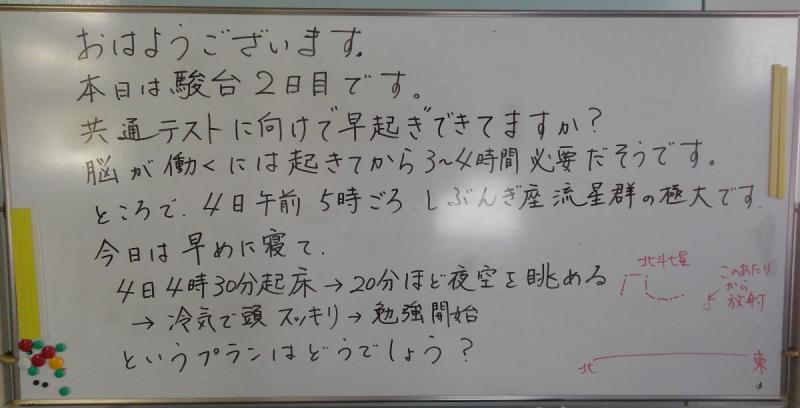 おはようございます。
本日は駿台2日目です。
共通テストに向けて早起きできてますか?
脳が働くには起きてから3~4時間必要だそうです。
ところで、4日午前5時ごろ、しぶんぎ座流星群の極大です。
今日は早めに寝て、
4日4時30分起床→20分ほど夜空を眺める
→冷気で頭スッキリ→勉強開始
というプランはどうでしょう?
北斗七星
このあたり
から
放射
北
東